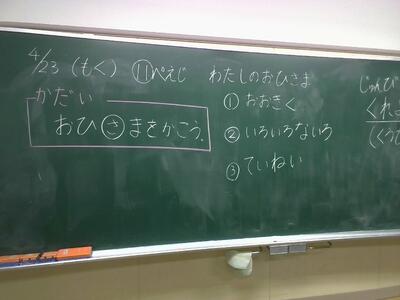 4/23（もく） ⑪ぺえじ
かだい
おひさまをかこう。
わたしのおひさま
①おおきく
②いろいろないろ
③ていねい
じゅんび